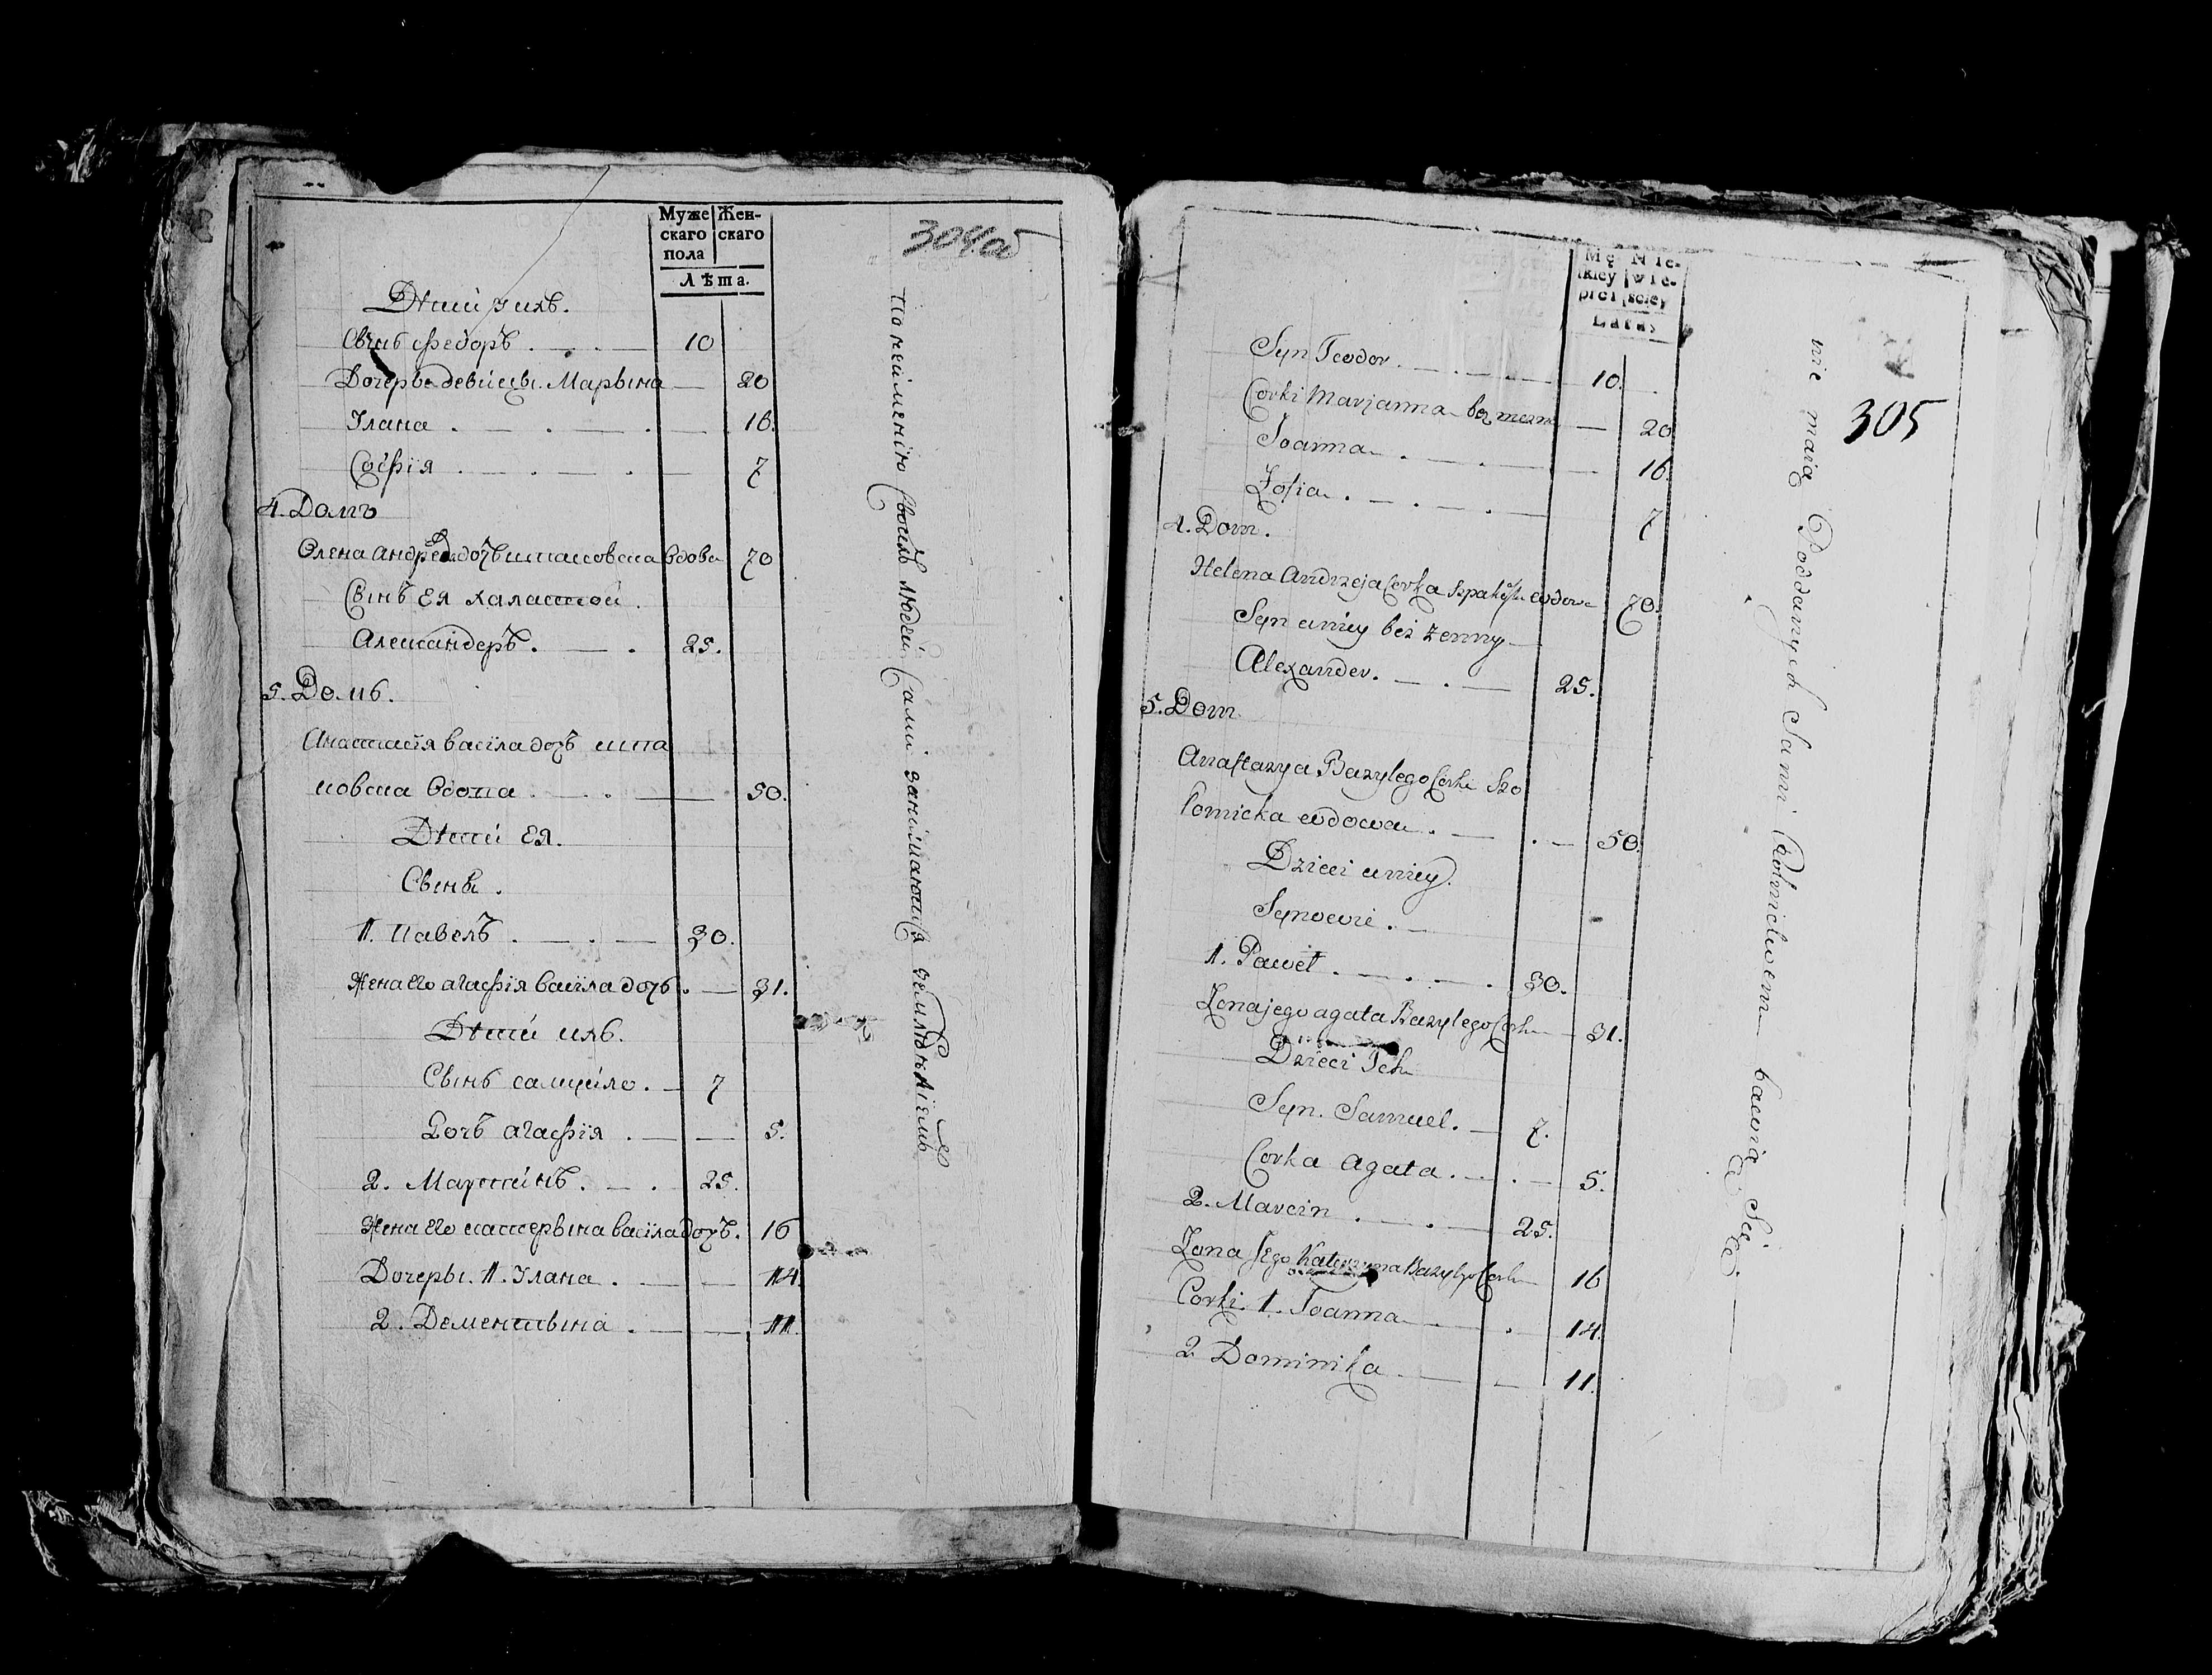 Муже Жен-
скаго скаго
пола
Лѣта.
304об
Дѣти у ихъ.
Сынъ Федоръ . . — 10
Дочеры девицы. Марына — 20
Улана . — . — . — 16.
Софія . — . — . — 7
4. Домъ
Олена Андрея дочъ вдова 70
Сынъ Ея халастой .
Александеръ . — . 25.
5. Домъ.
Анастасія васіла дочъ шпа
ковска вдова . — . — 50.
Дѣти Ея.
Сыны .
1. Павелъ . — . — 30.
Жена Его агафія васіла дочъ . — 31.
Дѣти ихъ.
Сынъ самуйло . — 7
Дочъ агафія . — — 5.
2. Мартинъ . — . 25.
Жена Его катерына васіла дочъ. 16
Дочеры. 1. Улана . — — 14.
2. Дементыяна . — — 11.
По неимению своихъ людей сами занимаются земледѣліемъ
Mę Nie-
skiey wie-
płci sciey
Lata
305
Syn Teodor . — . — . — 10.
Corki Marjanna bez mezna — 20
Joanna . — . — 16.
Zofia . — . — . — 7
4. Dom.
Helena Andrzeja Corka wdowa 70.
Syn u niey bez zenny —
Alexander. — . — 25.
5. Dom
Anastazya Bazylego Corka Szo
łomicka wdowa . — . — 50.
Dzieci u niey.
Synowie . —
1. Paweł . — . — . 30.
Zona jego agata Bazylego Corka — 31.
Dzieci Ich
Syn. Samuel. — 7.
Corka agata. — . — 5.
2. Marcin . — . — 25.
Zona Jego Katerzyna Bazylego Corka 16
Corki. 1. Joanna — . — 14.
2 Dominika — — 11.
nie maią Poddanych Sami Rolnictwem bawią Się.